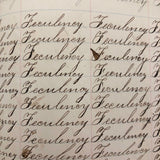 Feculency Feculency Feculency
Feculency Feculency Feculency
Feculency Feculency Feculency
Feculency Feculency Feculency
Feculency Feculency Feculency
Feculency Feculency Feculency
Feculency Feculency Feculency
Feculency Feculency Feculency